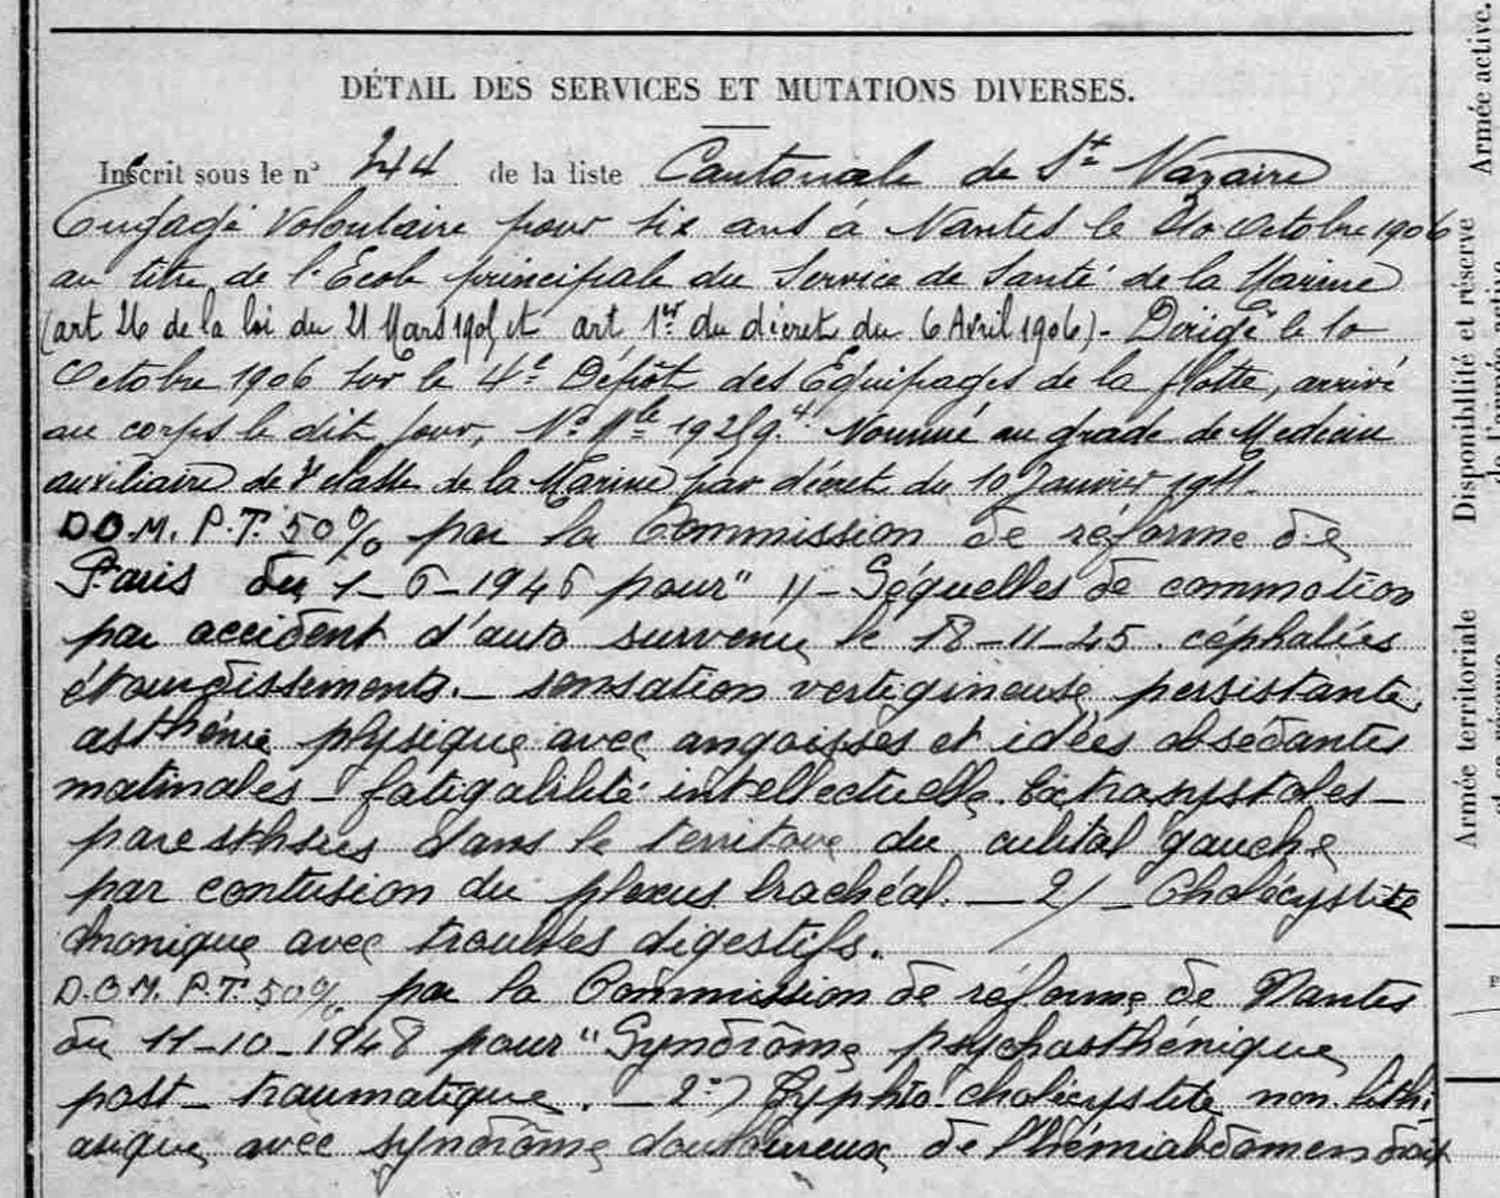 DÉTAIL DES SERVICES ET MUTATIONS DIVERSES.
Inscrit sous le n° 244 de la liste Cantonale de St Nazaire
Engagé Volontaire pour six ans à Nantes le 10 Octobre 1906
au titre de l'Ecole principale du Service de Santé de la Marine
(art 26 de la loi du 21 Mars 1905 et art 1er du décret du 6 Avril 1906)- Dirigé le 10
Octobre 1906 sur le 4e Dépôt des Equipages de la flotte, arrivé
au corps le dit jour, N° Mle 19259.4. Nommé au grade de Medecin
auxiliaire de 2e classe de la Marine par décret du 10 Janvier 1911.
D.O.M. P.T. 50% par la Commission de réforme de
Paris du 1-6-1946 pour " 1)- Séquelles de commotion
par accident d'auto survenu le 18-11-45. céphalées
étourdissements.- sensation vertigineuse persistante,
asthénie physique avec angoisses et idées obsédantes
matinales - fatigabilité intellectuelle. Extrasystoles -
paresthsies dans le territoire du cubital gauche
par contusion du plexus brachéal. - 2)- Cholécystite
chronique avec troubles digestifs.
D.O.M. P.T. 50% par la Commission de réforme de Nantes
du 11-10-1948 pour "Syndrôme psychasthénique
post-traumatique. - 2°) Typhlo-cholécystite non lithi
asique avec syndrôme douloureux de l'hémiabdomen droit
Armée active.
Disponibilité et réserve
de l'armée active
Armée territoriale
et sa réserve